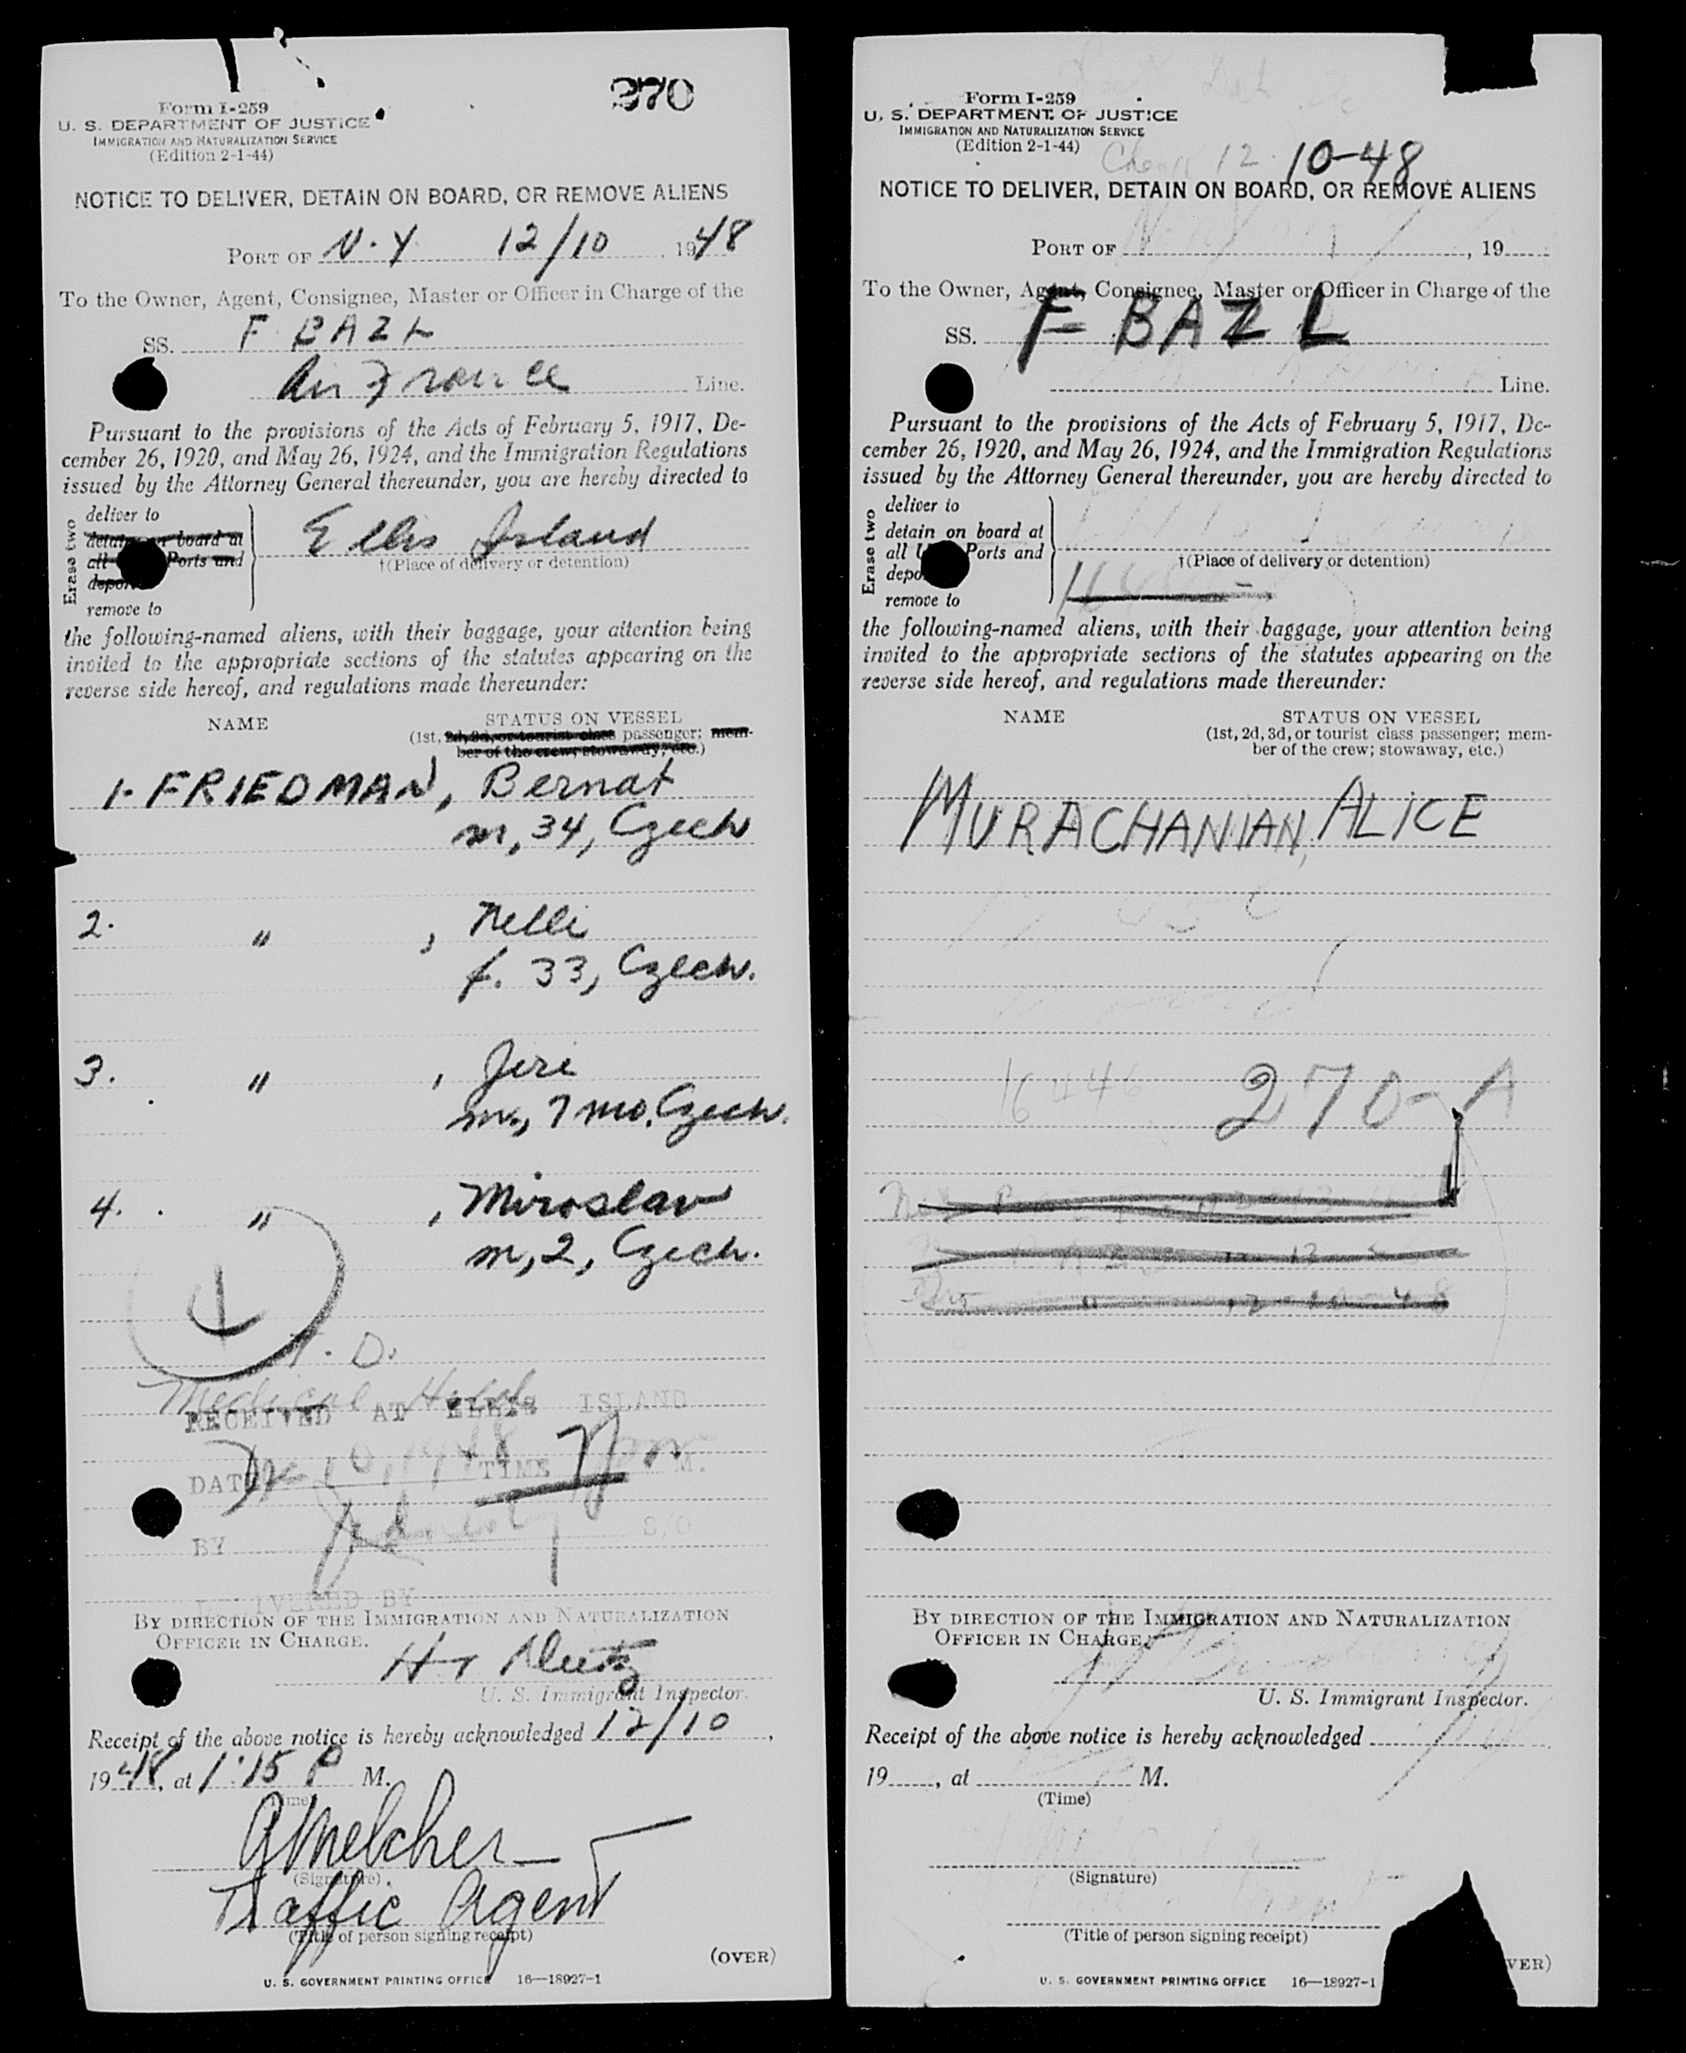 270
Form I-259
U. S. DEPARTMENT OF JUSTICE
IMMIGRATION AND NATURALIZATION SERVICE
(Edition 2-1-44)
NOTICE TO DELIVER, DETAIN ON BOARD, OR REMOVE ALIENS
PORT OF N.Y. 12/10, 1948
To the Owner, Agent, Consignee, Master or Officer in Charge of the
SS. F BAZL
Air France Line.
Pursuant to the provisions of the Acts of February 5, 1917, De-
cember 26, 1920, and May 26, 1924, and the Immigration Regulations
issued by the Attorney General thereunder, you are hereby directed to
Erase two
deliver to
detain on board at
all Ports and
depor
remove to
Ellis Island
†(Place of delivery or detention)
the following-named aliens, with their baggage, your attention being
invited to the appropriate sections of the statutes appearing on the
reverse side hereof, and regulations made thereunder:
NAME STATUS ON VESSEL
(1st, 2d, 3d, or tourist class passenger; mem-
ber of the crew; stowaway, etc.)
1. FRIEDMAN, Bernat
m, 34, Czech
2. " , Nelli
f. 33, Czech.
3. " , Jiri
m., 7 mo. Czech.
4. " , Miroslav
m, 2, Czech.
T. D.
Medical Hold
RECEIVED AT ELLIS ISLAND
DATE Dec 10, 1948 TIME M.
BY S/O
IVERED BY
BY DIRECTION OF THE IMMIGRATION AND NATURALIZATION
OFFICER IN CHARGE.
U. S. Immigrant Inspector.
Receipt of the above notice is hereby acknowledged 12/10,
1948, at 1:15 P M.
(Time)
A Melcher
(Signature)
Traffic Agent
(Title of person signing receipt)
(OVER)
U. S. GOVERNMENT PRINTING OFFICE 16—18927-1
Form I-259
U. S. DEPARTMENT OF JUSTICE
IMMIGRATION AND NATURALIZATION SERVICE
(Edition 2-1-44)
12-10-48
NOTICE TO DELIVER, DETAIN ON BOARD, OR REMOVE ALIENS
PORT OF , 19
To the Owner, Agent, Consignee, Master or Officer in Charge of the
SS. F BAZL
Line.
Pursuant to the provisions of the Acts of February 5, 1917, De-
cember 26, 1920, and May 26, 1924, and the Immigration Regulations
issued by the Attorney General thereunder, you are hereby directed to
Erase two
deliver to
detain on board at
all U Ports and
depo
remove to
†(Place of delivery or detention)
the following-named aliens, with their baggage, your attention being
invited to the appropriate sections of the statutes appearing on the
reverse side hereof, and regulations made thereunder:
NAME STATUS ON VESSEL
(1st, 2d, 3d, or tourist class passenger; mem-
ber of the crew; stowaway, etc.)
MURACHANIAN, ALICE
16446 270-A
BY DIRECTION OF THE IMMIGRATION AND NATURALIZATION
OFFICER IN CHARGE.
U. S. Immigrant Inspector.
Receipt of the above notice is hereby acknowledged
19 , at M.
(Time)
(Signature)
(Title of person signing receipt)
VER)
U. S. GOVERNMENT PRINTING OFFICE 16—18927-1